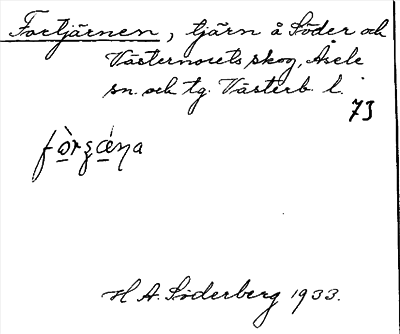 Fortjärnen, tjärn å Söder och
Västernorets skog, Åsele
sn. och tg. Västerb. l.
73
fò̱rʒǽ̱ṇa
H A. Söderberg 1933.